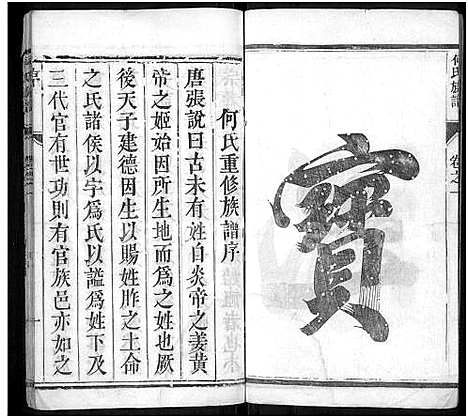 何氏族譜
卷之一
寶
何氏重修族譜序
唐張說曰古未有姓自炎帝之姜黃
帝之姬始因所生地而爲之姓也厥
後天子建德因生以賜姓胙之土命
之氏諸侯以字爲氏以諡爲姓下及
三代官有世功則有官族邑亦如之
序
一